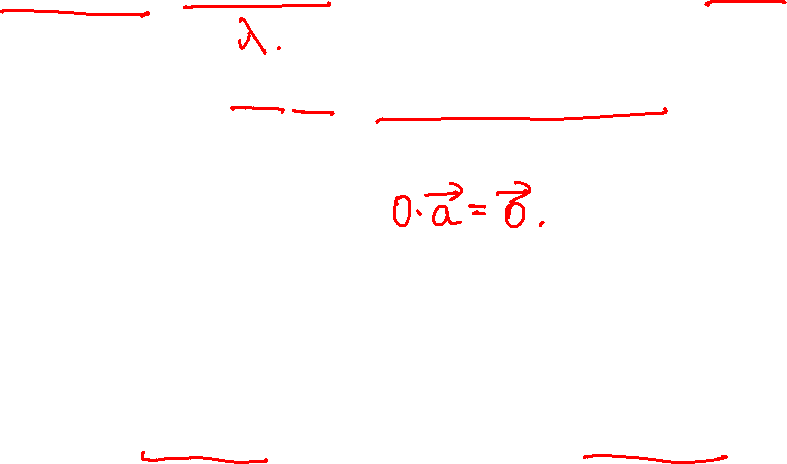 λ.
0·a⃗=0⃗.